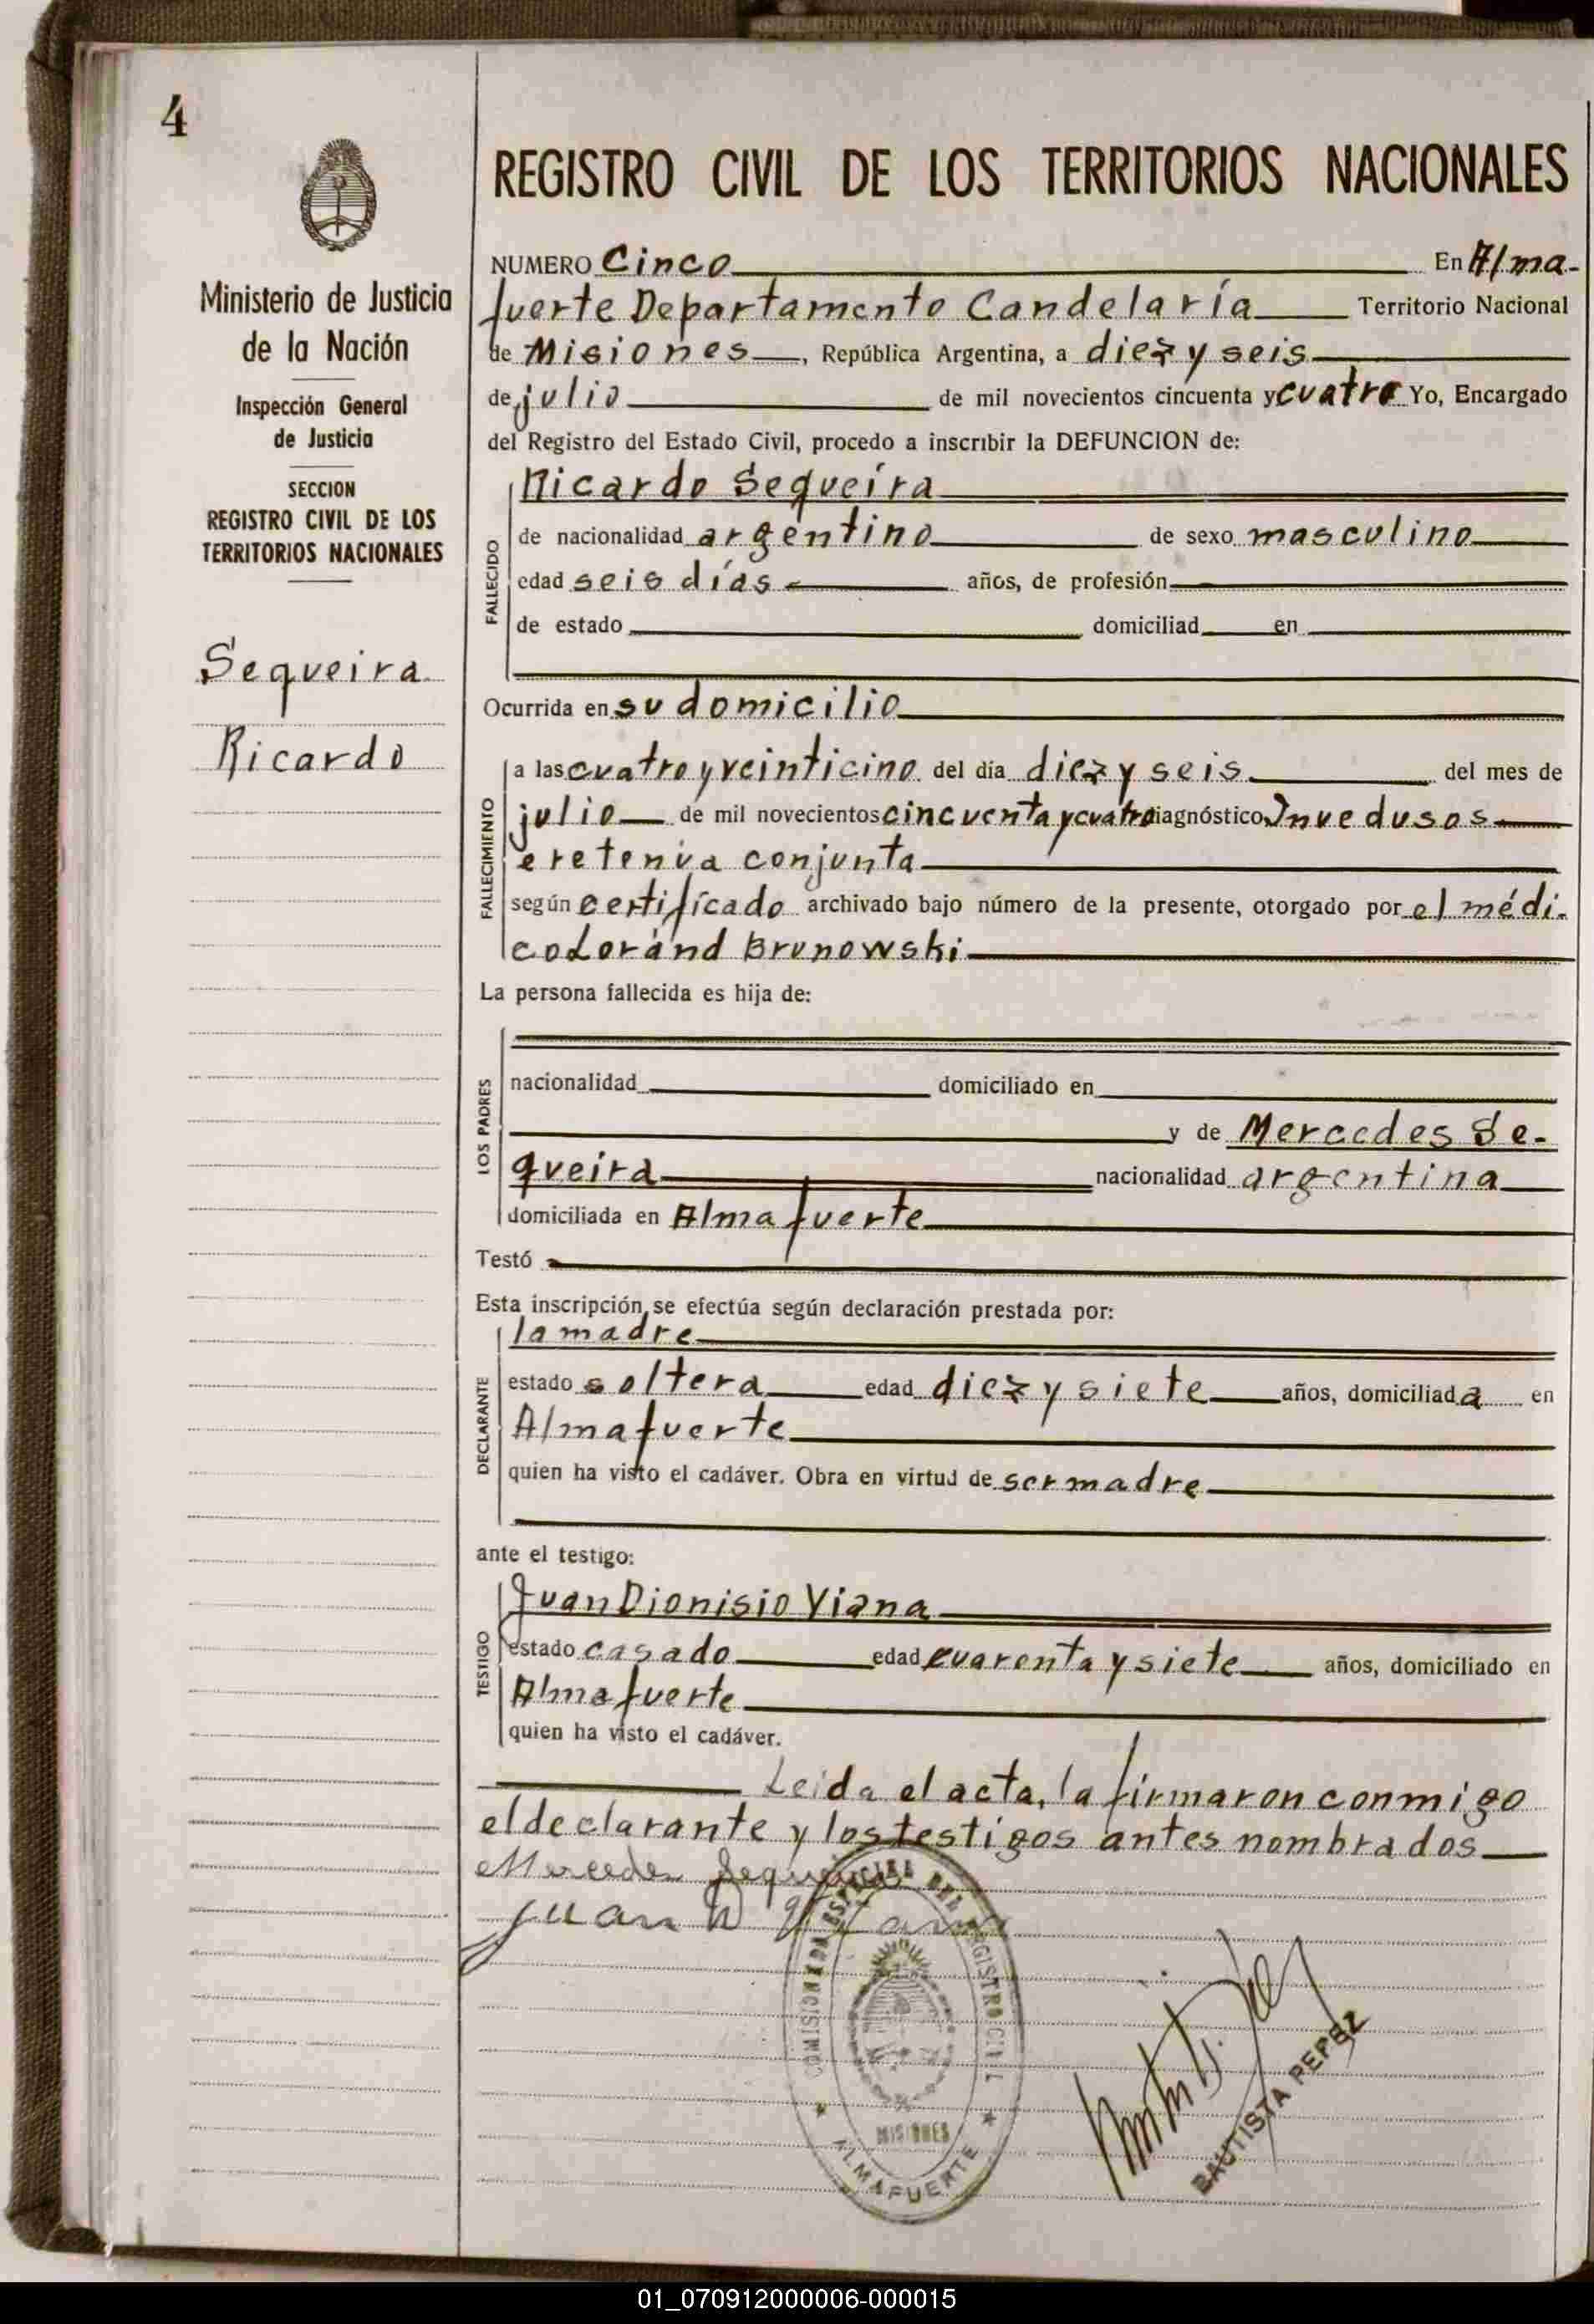 4
REGISTRO CIVIL DE LOS TERRITORIOS NACIONALES
Ministerio de Justicia
de la Nación
Inspección General
de Justicia
SECCION
REGISTRO CIVIL DE LOS
TERRITORIOS NACIONALES
Sequeira
Ricardo
NUMERO Cinco En Alma-
fuerte Departamento Candelaría Territorio Nacional
de Misiones, República Argentina, a diez y seis
de julio de mil novecientos cincuenta y cuatro Yo, Encargado
del Registro del Estado Civil, procedo a inscribir la DEFUNCION de:
Ricardo Sequeira
FALLECIDO
de nacionalidad argentino de sexo masculino
edad seis días años, de profesión
de estado domiciliad en
Ocurrida en su domicilio
FALLECIMIENTO
a las cuatro y veinticino del día diez y seis del mes de
julio de mil novecientos cincuenta y cuatro diagnóstico
conjunta
según certificado archivado bajo número de la presente, otorgado por el médi-
co Loránd Brunowski
La persona fallecida es hija de:
LOS PADRES
nacionalidad domiciliado en
y de Mercedes Se-
queira nacionalidad argentina
domiciliada en Almafuerte
Testó
Esta inscripción se efectúa según declaración prestada por:
la madre
DECLARANTE
estado soltera edad diez y siete años, domiciliada en
Almafuerte
quien ha visto el cadáver. Obra en virtud de ser madre
ante el testigo:
Juan Dionisio Viana
TESTIGO
estado casado edad cuarenta y siete años, domiciliado en
Almafuerte
quien ha visto el cadáver.
Leida el acta, la firmaron conmigo
el declarante y los testigos antes nombrados
Mercedes Sequeira
Juan D Viana
COMISION ESPECIAL DEL REGISTRO CIVIL
MISIONES
ALMAFUERTE
BAUTISTA REPEZ
01_070912000006-000015